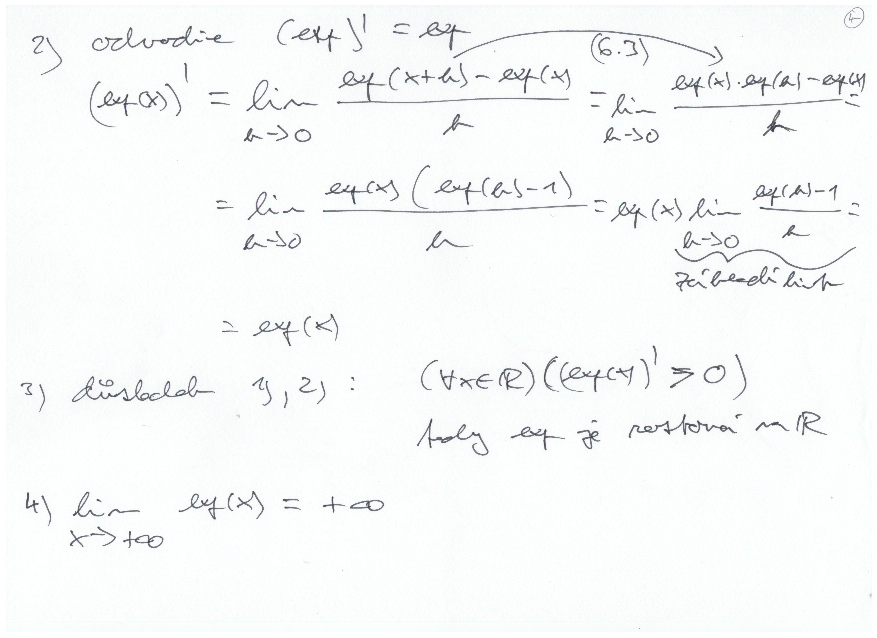 4
2) odvodíme (exp)' = exp
(exp(x))' = lim h→0 (exp(x+h) - exp(x))/h = (6.3) lim h→0 (exp(x)·exp(h) - exp(x))/h =
= lim h→0 (exp(x)(exp(h)-1))/h = exp(x) lim h→0 (exp(h)-1)/h =
základní limita
= exp(x)
3) důsledek 1), 2) : (∀x∈ℝ)((exp(x))' > 0)
tedy exp je rostoucí na ℝ
4) lim x→+∞ exp(x) = +∞